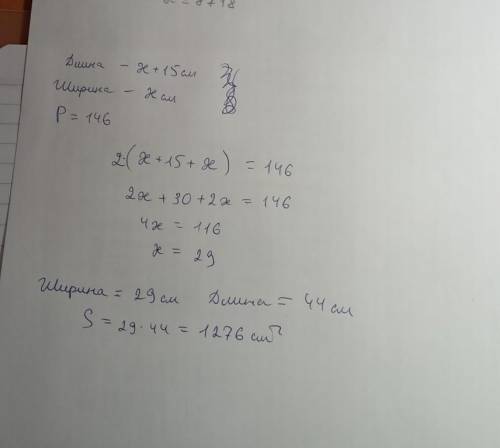 Длина - x+15см
Ширина - x см
P = 146
2·(x+15+x) = 146
2x + 30 + 2x = 146
4x = 116
x = 29
Ширина = 29 см Длина = 44 см
S = 29·44 = 1276 см²